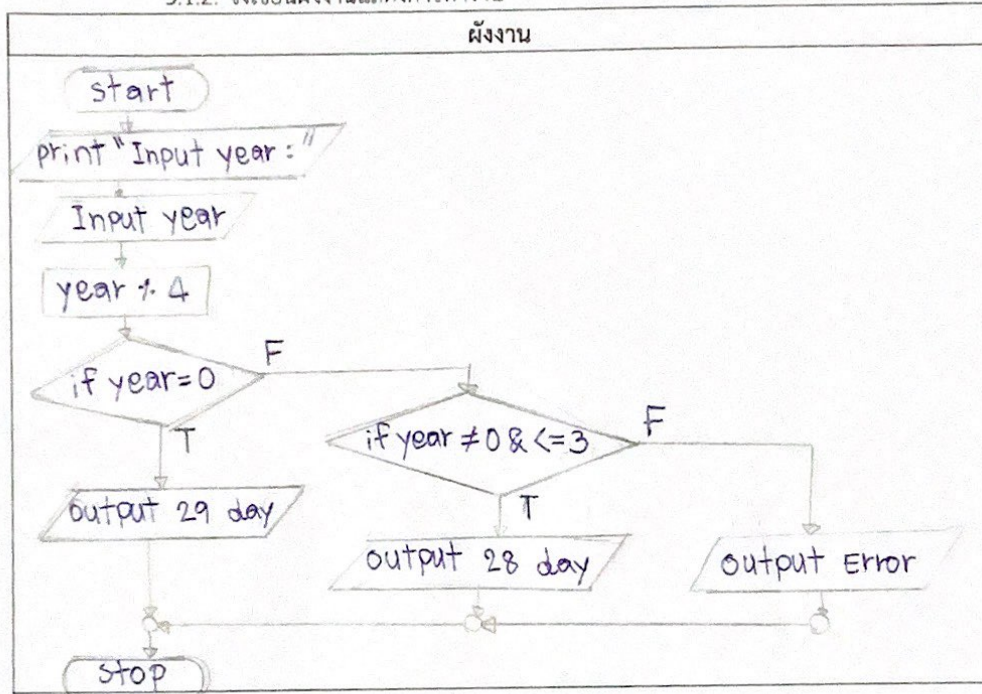 3.1.2.
ผังงาน
start
print "Input year : "
Input year
year % 4
if year = 0
F
T
if year ≠ 0 & <= 3
F
T
output 29 day
output 28 day
output Error
stop